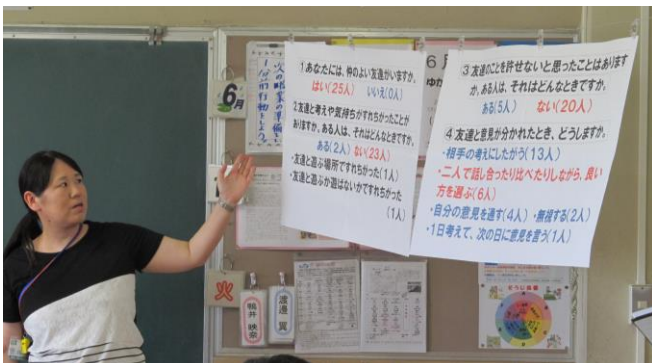 1あなたには、仲のよい友達がいますか。
はい(25人) いいえ(0人)
2友達と考えや気持ちがすれちがったことが
ありますか。ある人は、それはどんなときですか。
ある(2人) ない(23人)
・友達と遊ぶ場所ですれちがった(1人)
・友達と遊ぶか遊ばないかですれちがった
(1人)
3友達のことを許せないと思ったことはあります
か。ある人は、それはどんなときですか。
ある(5人) ない(20人)
4友達と意見が分かれたとき、どうしますか。
・相手の考えにしたがう(13人)
・二人で話し合ったり比べたりしながら、良い
方を選ぶ(6人)
・自分の意見を通す(4人) ・無視する(2人)
・1日考えて、次の日に意見を言う(1人)
6月
6月
次の授業の準備と
1分前行動をしよう。
火
鴨井 映奈
渡邊 翼
そうじ当番